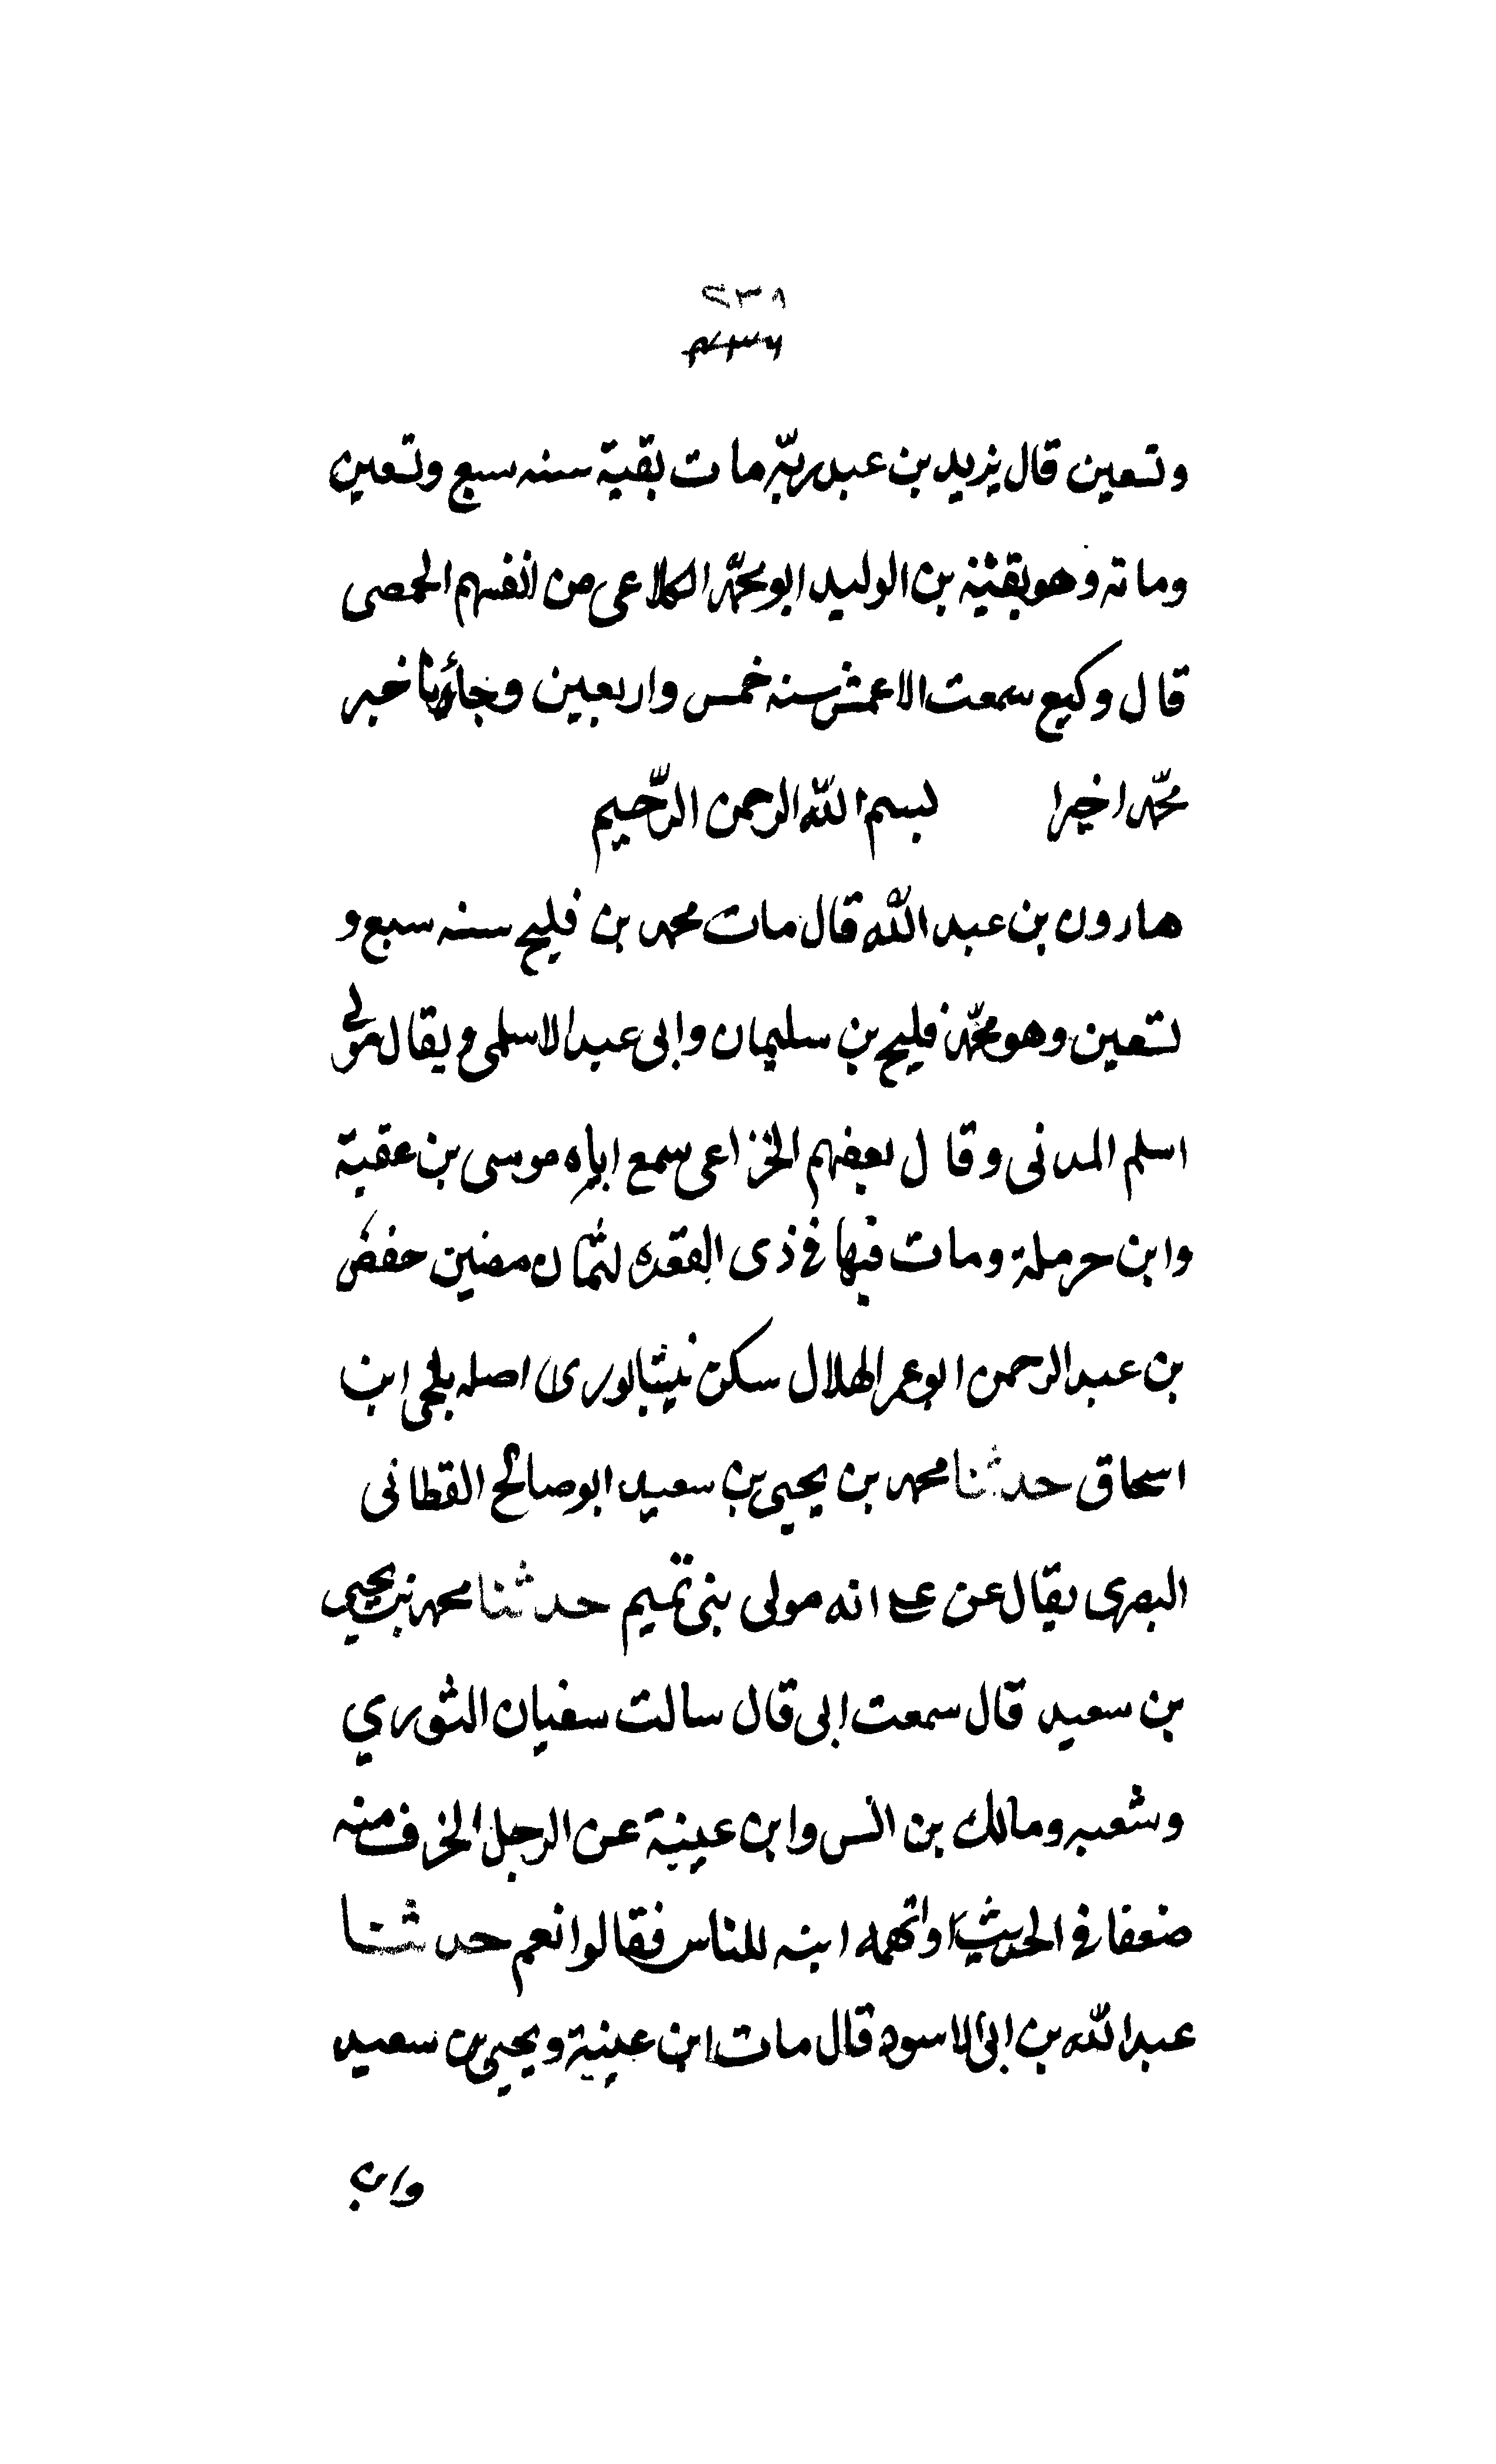 ٢٣٨
٢٣٦
وتسعين قال يزيد بن عبد ربّه مات بقية سنه سبع وتسعين
وماته وهو بقيّة بن الوليد ابو محمّد الكلاعى من انفسهم الحمصى
قال وكيع سمعت الاعمش سنه خمس واربعين وجأنا خبر
محمّد اخيرا بسم اللّه الرحمن الرّحيم
هارون بن عبد اللّه قال مات محمد بن فليح سنه سبع و
تسعين وهو محمّد فليح بن سليمان وابى عبد الاسلمى ويقال مولى
اسلم المدنى وقال بعضهم الخزاعى سمع اباه موسى بن عقبة
وابن حرملة ومات فيها فى ذى القعده لثمان مضين حفص
بن عبد الرحمن ابو عمر الهلال سكن نيشابورى اصله بلخى ابن
اسحاق حدثنا محمد بن يحيى بن سعيد ابو صالح القطانى
البصرى يقال عن انه مولى بنى تميم حدثنا محمد بن يحيى
بن سعيد قال سمعت ابى قال سالت سفيان الثوري
وشعبه ومالك بن انس وابن عينية عن الرجل منه
ضعفا فى الحديث او اتهمه ابنه للناس فقالوا نعم حدثنا
عبد اللّه بن ابى الاسود قال مات ابن عينية ويحيى بن سعيد
وابن